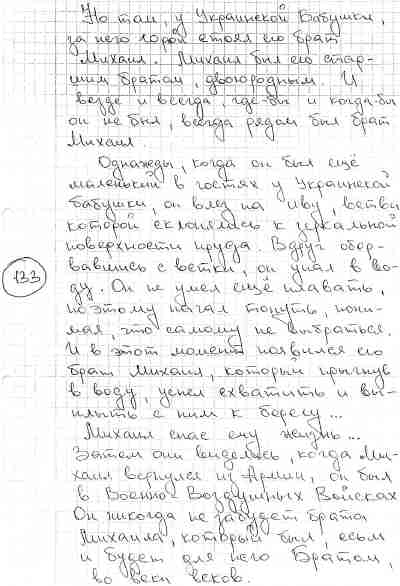 Но там, у Украинской Бабушки,
за него горой стоял его брат
Михаил. Михаил был его стар-
шим братом, двоюродным. И
везде и всегда, где-бы и когда-бы
он не был, всегда рядом был брат
Михаил.
Однажды, когда он был ещё
маленький в гостях у Украинской
бабушки, он влез на иву, ветви
которой склонялись к зеркальной
поверхности пруда. Вдруг обор-
вавшись с ветки, он упал в во-
ду. Он не умел ещё плавать,
поэтому начал тонуть, пони-
мая, что самому не выбраться.
И в этот момент появился его
брат Михаил, который прыгнув
в воду, успел схватить и вы-
плыть с ним к берегу...
Михаил спас ему жизнь...
Затем они виделись, когда Ми-
хаил вернулся из Армии, он был
в Военно-Воздушных Войсках
Он никогда не забудет брата
Михаила, который был, есть
и будет для него Братом,
во веки веков.
133